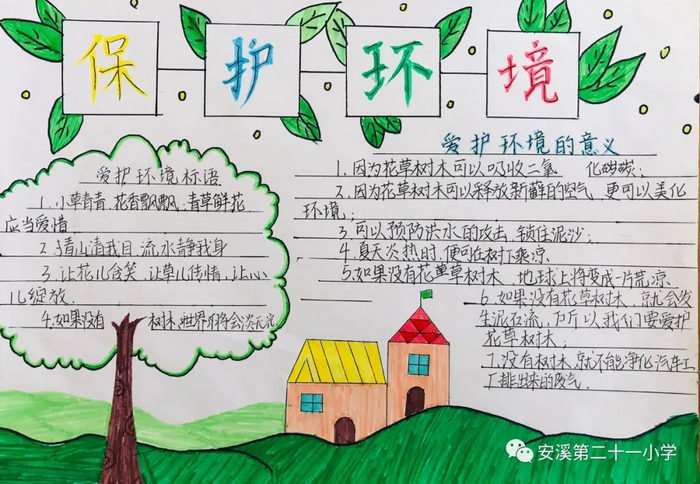 保护环境
爱护环境标语
1.小草青青,花香飘飘,青草鲜花
应当爱惜
2.青山清我目,流水静我身
3.让花儿含笑,让草儿传情,让心
儿绽放.
4.如果没有 树木,世界将会
爱护环境的意义
1.因为花草树木可以吸收二氧 化碳碳;
2.因为花草树木可以释放新鲜的空气,更可以美化
环境;
3.可以预防洪水的攻击,锁住泥沙;
4.夏天炎热时,便可在树下乘凉.
5.如果没有花草草树木,地球上将变成一片荒凉.
6.如果没有花草树木,就会发
生泥石流,所以我们要爱护
花草树木;
7.没有树木,就不能净化汽车工
厂排出来的废气.
安溪第二十一小学